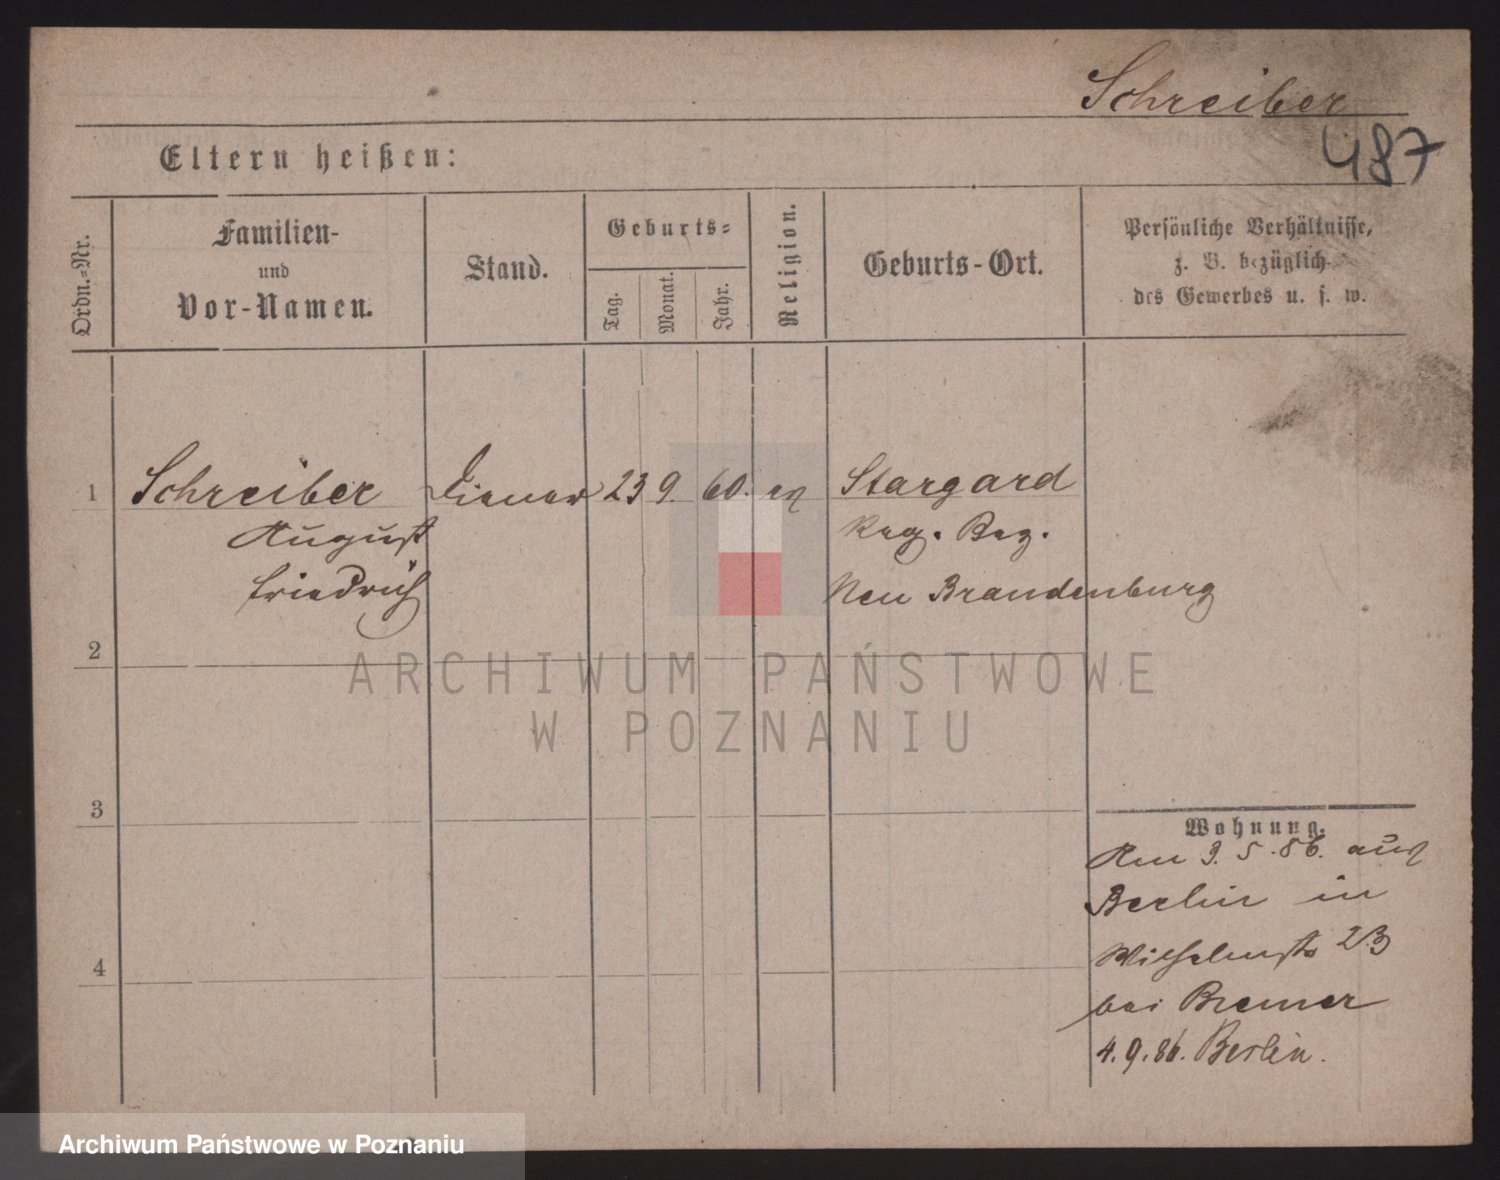 Schreiber
487
Eltern heißen:
Ordn.-Nr.
Familien-
und
Vor-Namen.
Stand.
Geburts-
Tag.
Monat.
Jahr.
Religion.
Geburts-Ort.
Persönliche Verhältnisse,
z. B. bezüglich
des Gewerbes u. s. w.
1 Schreiber Diener 23 9. 60. ev Stargard
August Reg. Bez.
Friedrich Neu Brandenburg
2
ARCHIWUM PAŃSTWOWE
W POZNANIU
3
Wohnung.
Am 3. 5. 86. aus
Berlin in
4
Wilhelmst 23
bei Bremer
4. 9. 86. Berlin.
Archiwum Państwowe w Poznaniu